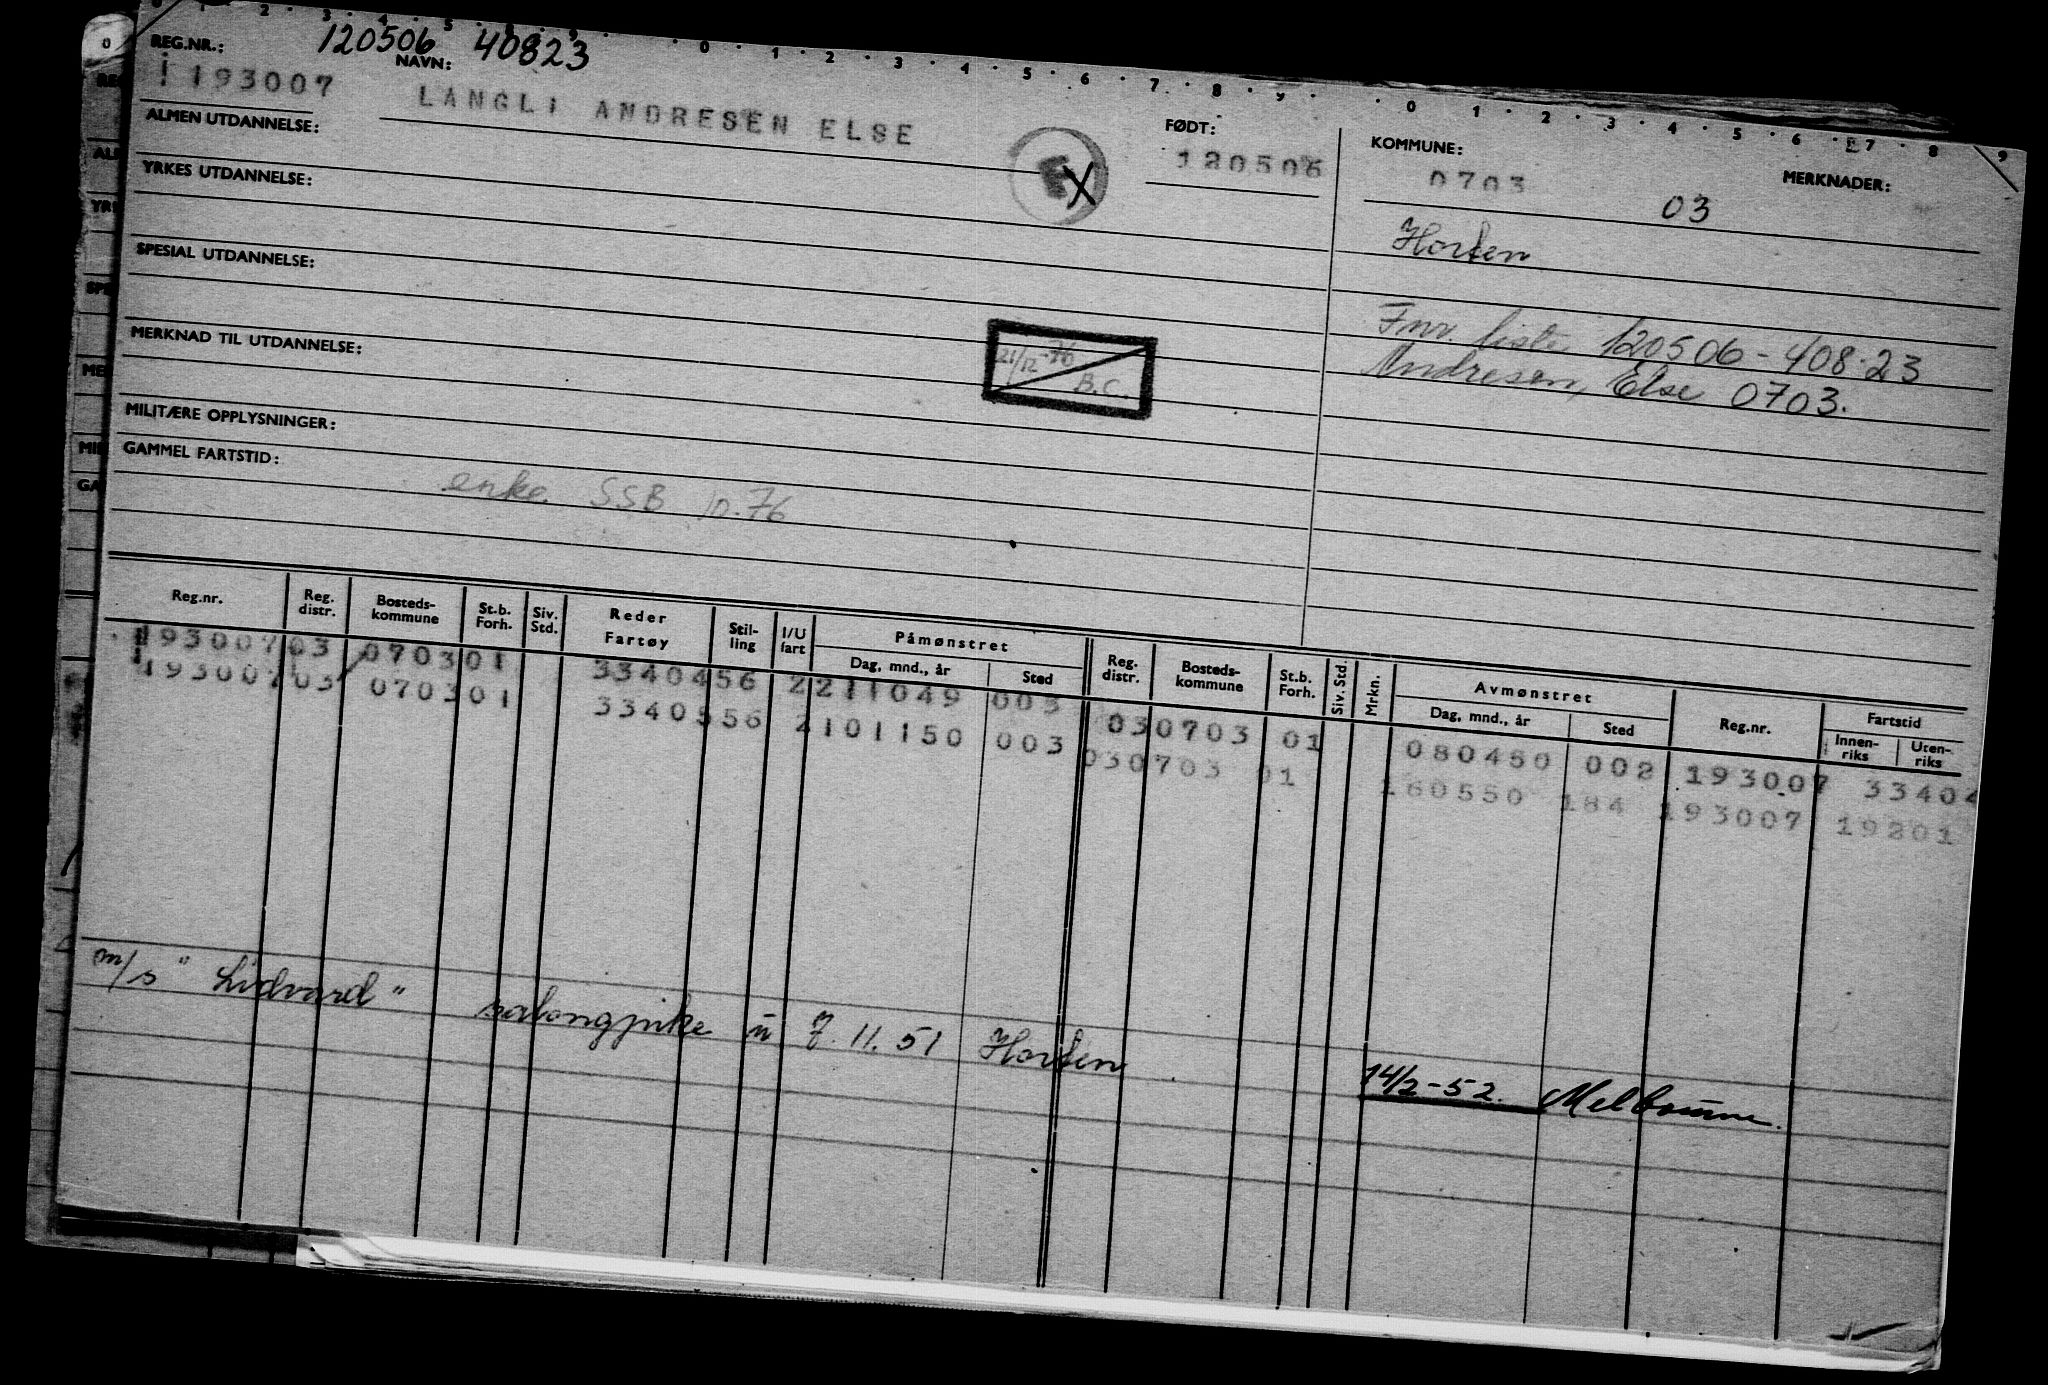 REG.NR.: 120506 40823
! 193007 NAVN: LANGLI ANDRESEN ELSE
FØDT: 120506
KOMMUNE: 0703
MERKNADER:
03
Horten
Fnr. liste 120506 - 408.23
Andresen, Else 0703.
ALMEN UTDANNELSE:
YRKES UTDANNELSE:
SPESIAL UTDANNELSE:
MERKNAD TIL UTDANNELSE:
21/12 -76
B.C.
MILITÆRE OPPLYSNINGER:
GAMMEL FARTSTID:
enke SSB 10.76
Reg.nr. Reg. distr. Bosteds-kommune St.b. Forh. Siv. Std. Reder Fartøy Stil-ling I/U fart Påmønstret Dag, mnd., år Sted Reg. distr. Bosteds-kommune St.b. Forh. Siv. Std. Mrkn. Avmønstret Dag, mnd., år Sted Reg.nr. Fartstid Innen-riks Uten-riks
193007 03 0703 01 33404 56 2 211049 003 03 0703 01 080450 002 193007 33404
193007 03 0703 01 33405 56 2 101150 003 03 0703 01 160550 184 193007 19201
m/s "Lidvard" salongpike u 7.11.51 Horten 14/2-52. Melbourne.